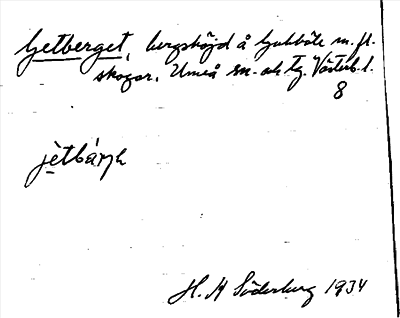 Getberget, bergshöjd å Gubböle m. fl.
skogar, Umeå sn. och tg. Västerb. l.
8
jètbárjh
H. M Söderberg 1934